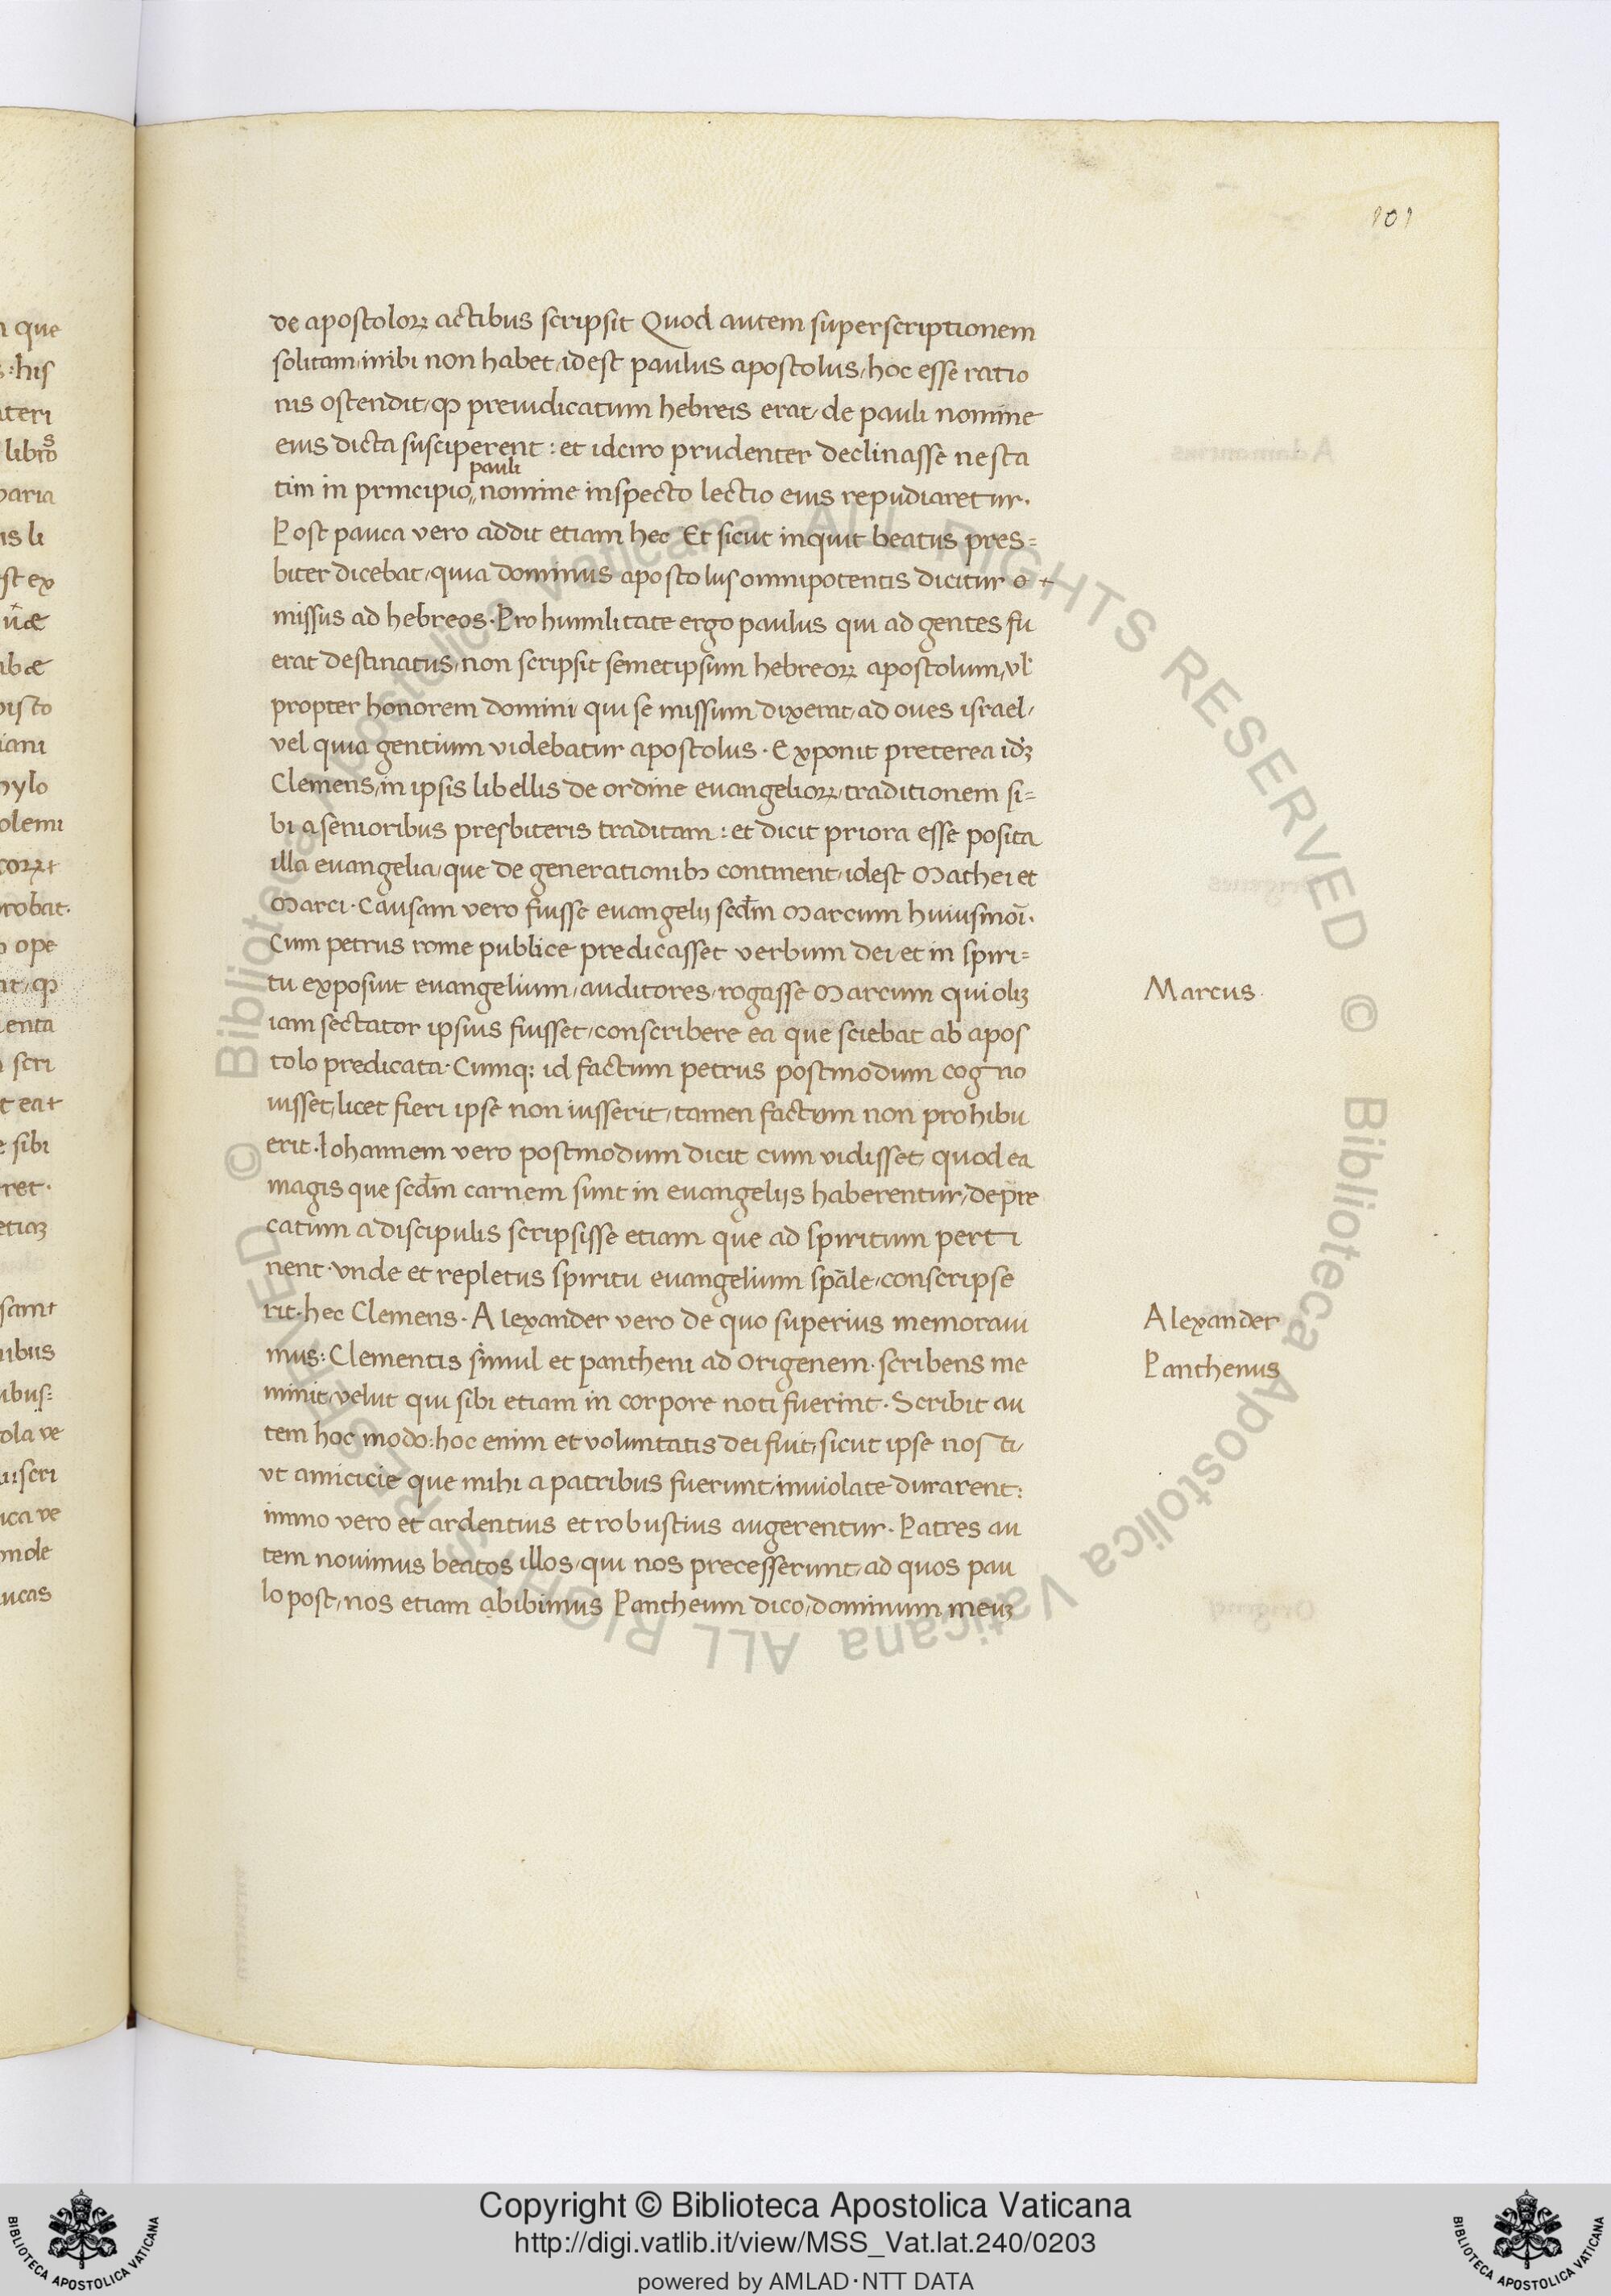 101
de apostoloꝝ actibus scripsit Quod autem superscriptionem
solitam inibi non habet, idest paulus apostolus, hoc esse ratio
nis ostendit, ꝙ preiudicatum hebreis erat, de pauli nomine
eius dicta susciperent : et idciro prudenter declinasse ne sta
pauli
tim in principio,, nomine inspecto lectio eius repudiaretur.
Post pauca vero addit etiam hec Et sicut inquit beatus pres=
biter dicebat, quia dominus apostolus omnipotentis dicitur e t
missus ad hebreos. Pro humilitate ergo paulus qui ad gentes fu
erat destinatus, non scripsit semetipsum hebreoꝝ apostolum, vl'
propter honorem domini qui se missum dixerat, ad oues israel,
vel quia gentium videbatur apostolus. Exponit preterea idꝫ
Clemens, in ipsis libellis de ordine euangelioꝝ, traditionem si=
bi a senioribus presbiteris traditam : et dicit priora esse posita
illa euangelia, que de generationibꝫ continent, idest Mathei et
Marci. Causam vero fuisse euangelij scd̄m Marcum huiusmōi.
Cum petrus rome publice predicasset verbum dei, et in spiri=
tu exposuit euangelium, auditores, rogasse Marcum qui oliꝫ
iam sectator ipsius fuisset, conscribere ea que sciebat ab apos
tolo predicata. Cumq; id factum petrus postmodum cogno
uisset, licet fieri ipse non iusserit, tamen factum non prohibu
erit. Iohannem vero postmodum dicit cum vidisset, quod ea
magis que scd̄m carnem sunt in euangelijs haberentur, depre
catum a discipulis scripsisse etiam que ad spiritum perti
nent. vnde et repletus spiritu euangelium spāle, conscripse
rit. hec Clemens. Alexander vero de quo superius memoraui
mus : Clementis simul et pantheni ad Origenem scribens me
minit, velut qui sibi etiam in corpore noti fuerint. Scribit au
tem hoc modo : hoc enim et voluntatis dei fuit, sicut ipse nosti,
vt amicicie que mihi a patribus fuerunt, inuiolate durarent :
immo vero et ardentius et robustius augerentur. Patres au
tem nouimus beatos illos, qui nos precesserunt, ad quos pau
lo post, nos etiam abibimus Pantheum dico, dominum meuꝫ
Marcus
Alexander
Panthenus
© Biblioteca Apostolica Vaticana ALL RIGHTS RESERVED
© Biblioteca Apostolica Vaticana ALL RIGHTS RESERVED
Copyright © Biblioteca Apostolica Vaticana
http://digi.vatlib.it/view/MSS_Vat.lat.240/0203
powered by AMLAD·NTT DATA
BIBLIOTECA APOSTOLICA VATICANA
BIBLIOTECA APOSTOLICA VATICANA